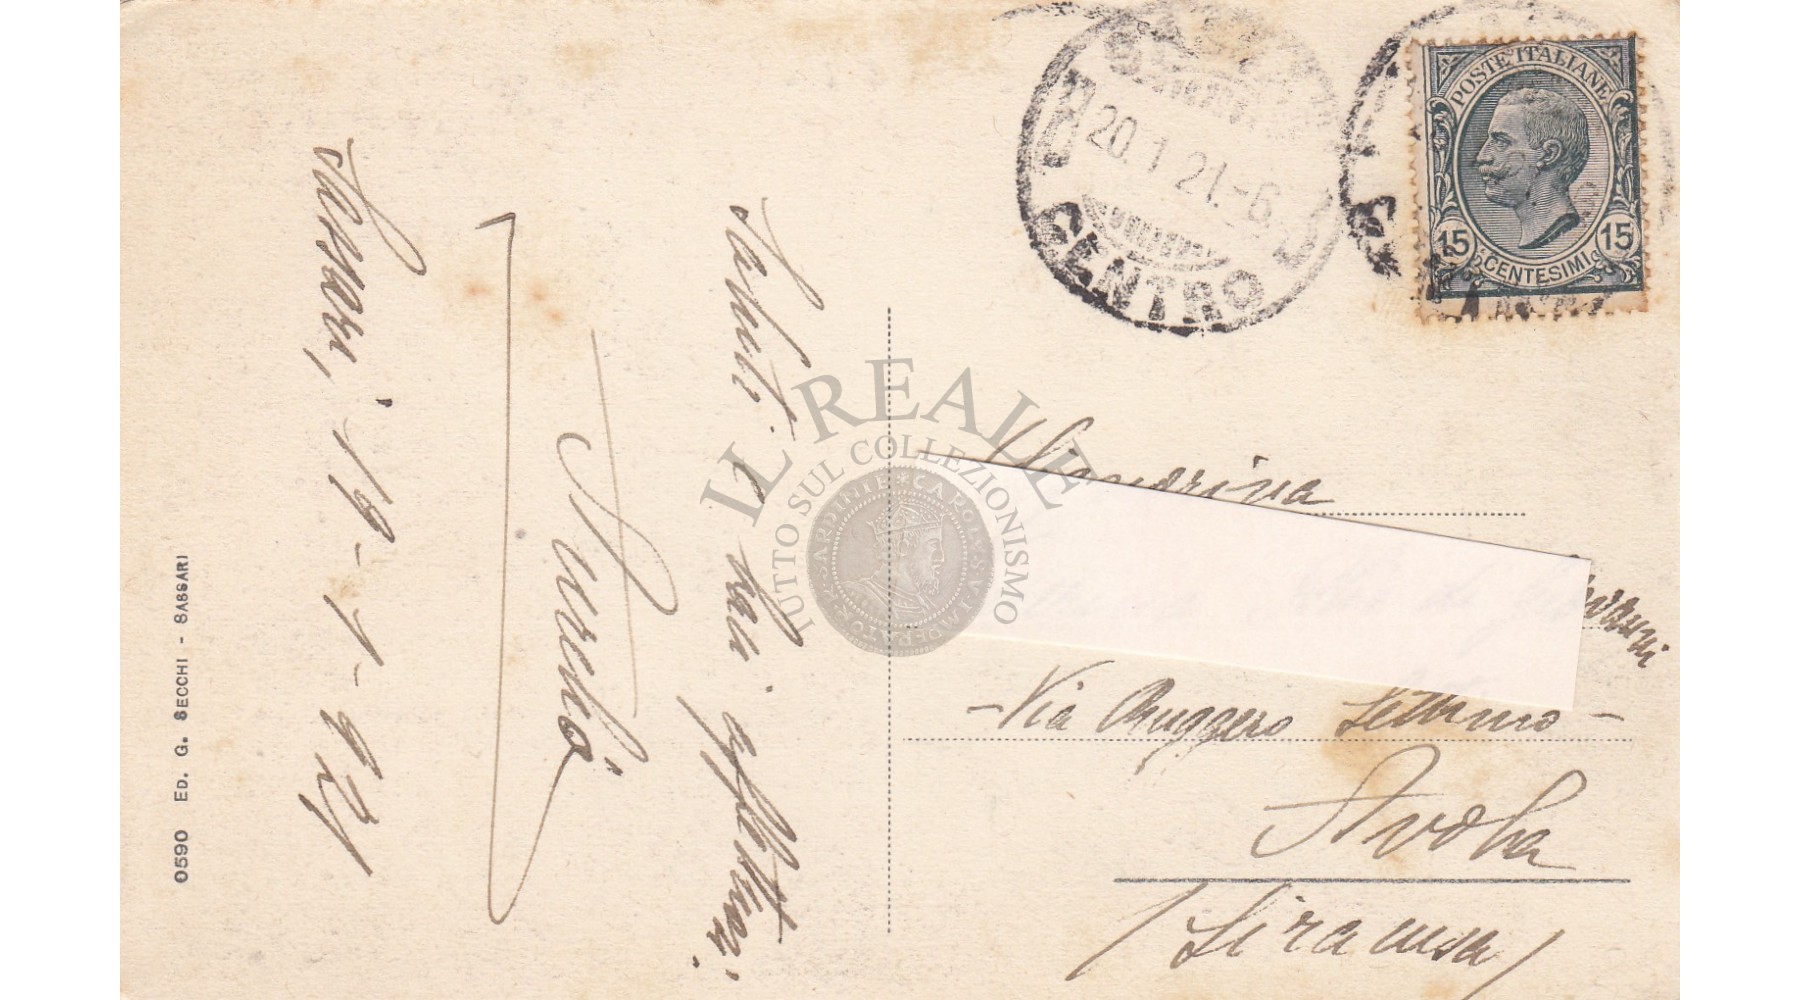 Sassari, 19-1-921
Saluti e baci affettuosi.
0590 ED. G. SECCHI - SASSARI
POSTE ITALIANE
15 CENTESIMI 15
20.1.21.-6
CENTRO
IL REALE
TUTTO SUL COLLEZIONISMO
Signorina
- Via Ruggero Settimo -
Avola
(Siracusa)